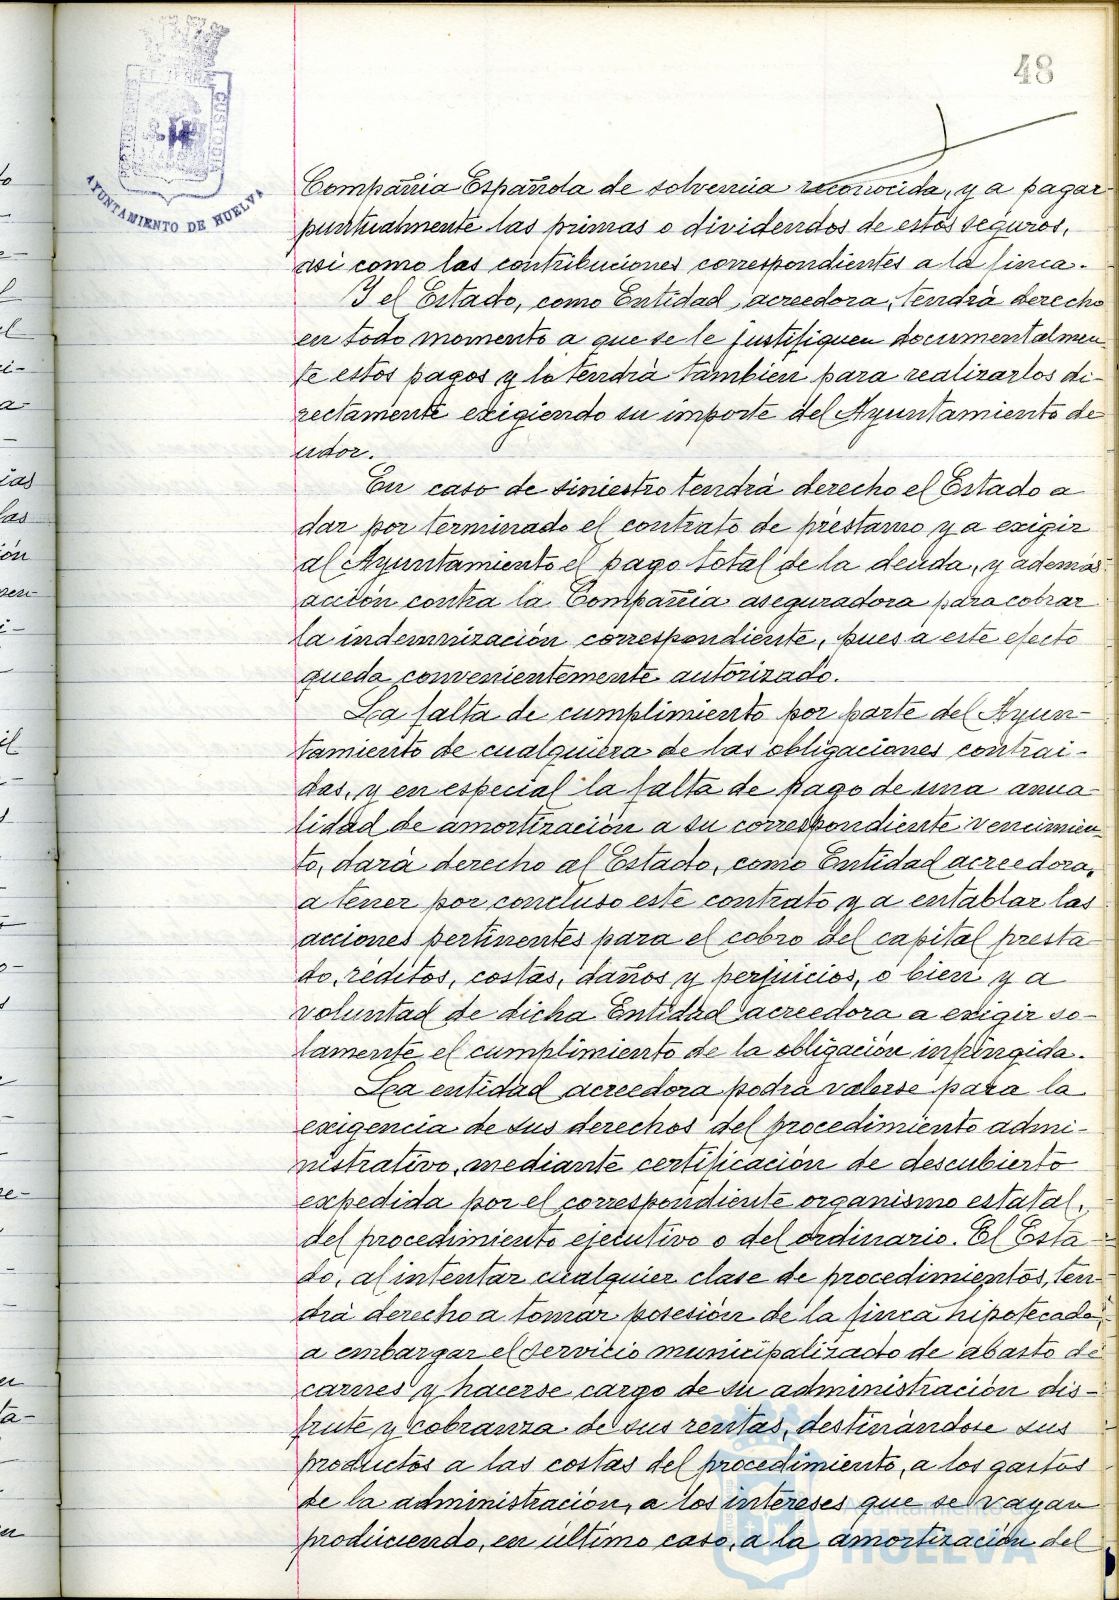 48
AYUNTAMIENTO DE HUELVA
Compañia Española de solvencia reconocida, y a pagar
puntualmente las primas o dividendos de estos seguros,
asi como las contribuciones correspondientes a la finca.
Y el Estado, como Entidad acreedora, tendrà derecho
en todo momento a que se le justifiquen documentalmen-
te estos pagos y lo tendrà tambien para realizarlos di-
rectamente exigiendo su importe del Ayuntamiento de
udor.
En caso de siniestro tendrà derecho el Estado a
dar por terminado el contrato de préstamo y a exigir
al Ayuntamiento el pago total de la deuda, y además
acción contra la Compañia aseguradora para cobrar
la indemnización correspondiente, pues a este efecto
queda convenientemente autorizado.
La falta de cumplimiento por parte del Ayun-
tamiento de cualquiera de las obligaciones contrai-
das, y en especial la falta de pago de una anua-
lidad de amortización a su correspondiente vencimien-
to, darà derecho al Estado, como Entidad acreedora,
a tener por concluso este contrato y a entablar las
acciones pertinentes para el cobro del capital presta-
do, réditos, costas, daños y perjuicios, o bien y a
voluntad de dicha Entidad acreedora a exigir so-
lamente el cumplimiento de la obligación infringida.
La entidad acreedora podrà valerse para la
exigencia de sus derechos del procedimiento admi-
nistrativo, mediante certificación de descubierto
expedida por el correspondiente organismo estatal,
del procedimiento ejecutivo o del ordinario. El Esta-
do, al intentar cualquier clase de procedimientos, ten-
drà derecho a tomar posesión de la finca hipotecada,
a embargar el servicio municipalizado de abasto de
carnes y hacerse cargo de su administración dis-
frute y cobranza de sus rentas, destinàndose sus
productos a las costas del procedimiento, a los gastos
de la administración, a los intereses que se vayan
produciendo, en último caso, a la amortización del
Ayuntamiento de
HUELVA